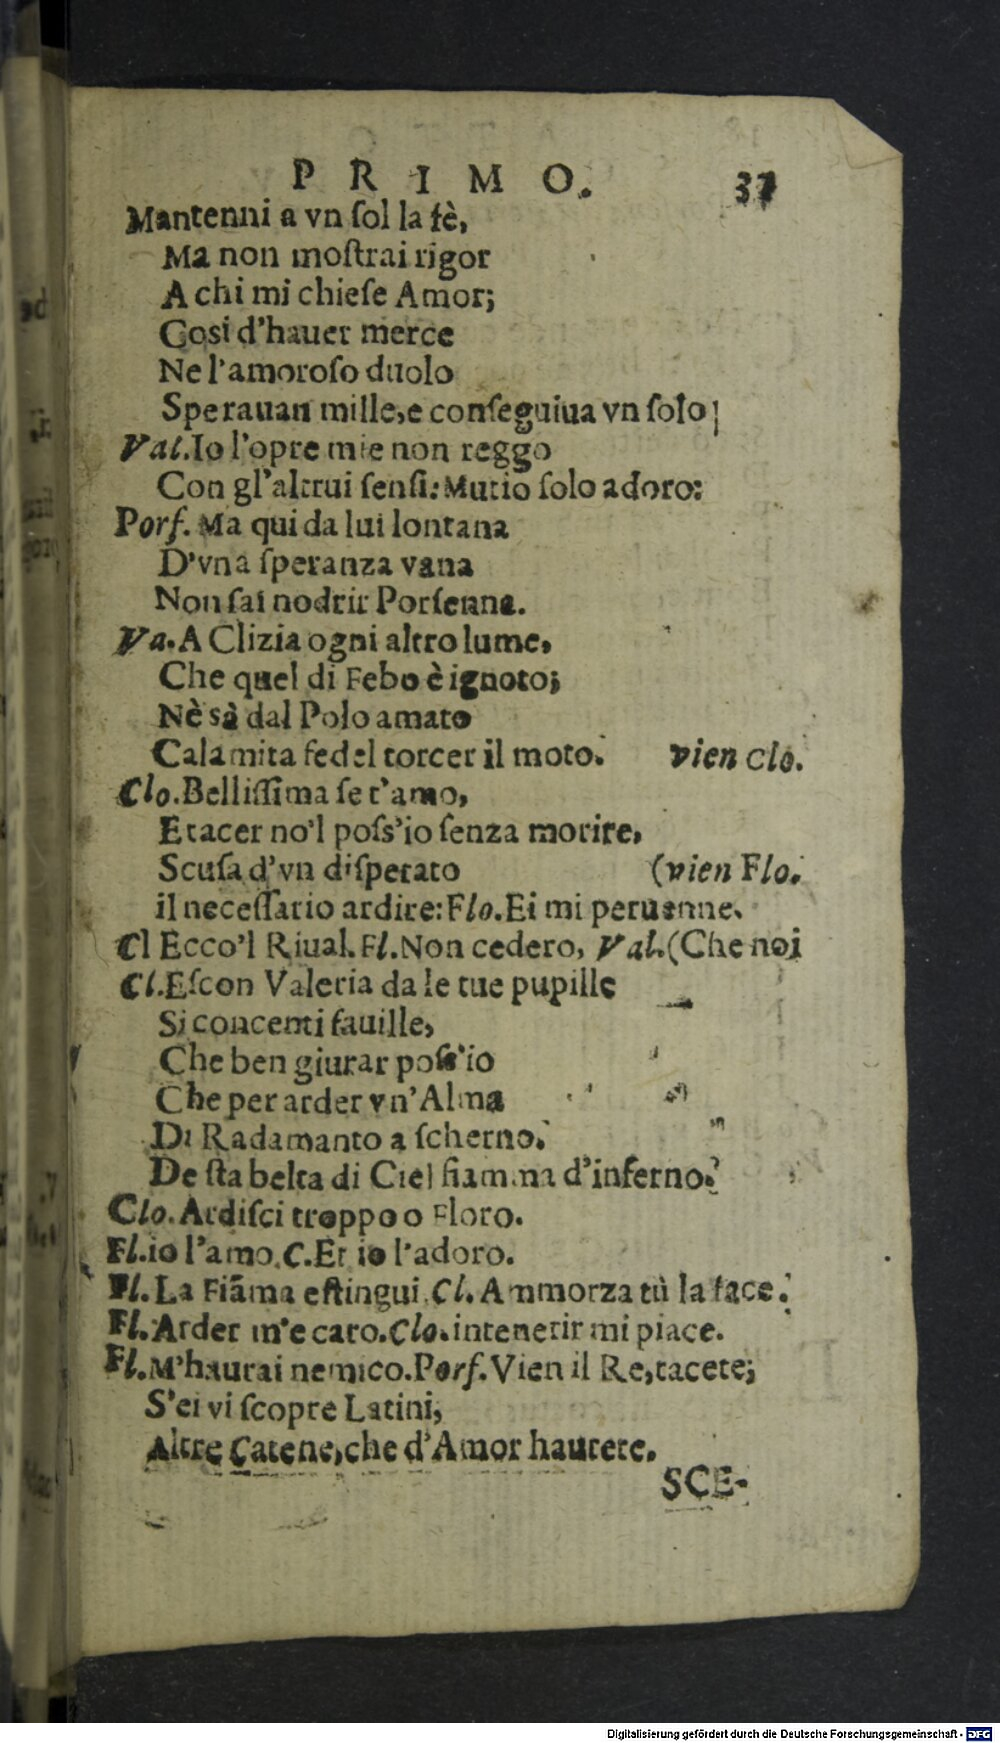 PRIMO. 37
Mantenni a vn ſol la fè,
Ma non moſtrai rigor
A chi mi chieſe Amor;
Cosi d'hauer merce
Ne l'amoroſo duolo
Sperauan mille, e conſeguiua vn ſolo;
Val. Io l'opre mie non reggo
Con gl'altrui ſenſi: Mutio ſolo adoro:
Porſ. Ma qui da lui lontana
D'vna ſperanza vana
Non ſai nodrir Porſenna.
Va. A Clizia ogni altro lume,
Che quel di Febo è ignoto;
Nè sà dal Polo amato
Calamita fedel torcer il moto. vien Clo.
Clo. Belliſſima ſe t'amo,
E tacer no'l poſs'io ſenza morire,
Scuſa d'vn diſperato (vien Flo.
il neceſſario ardire: Flo. Ei mi peruenne.
Cl Ecco'l Riual. Fl. Non cedero, Val. (Che noi
Cl. Eſcon Valeria da le tue pupille
Si concenti fauille,
Che ben giurar poſs'io
Che per arder vn'Alma
Di Radamanto a ſcherno.
De ſta belta di Ciel fiamma d'inferno.
Clo. Ardiſci troppo o Floro.
Fl. io l'amo. C. Et io l'adoro.
Fl. La Fiãma eſtingui. Cl. Ammorza tù la face.
Fl. Arder m'e caro. Clo. intenerir mi piace.
Fl. M'haurai nemico. Porſ. Vien il Re, tacete;
S'ei vi ſcopre Latini,
Altre Catene, che d'Amor haurete.
SCE-
Digitalisierung gefördert durch die Deutsche Forschungsgemeinschaft - DFG